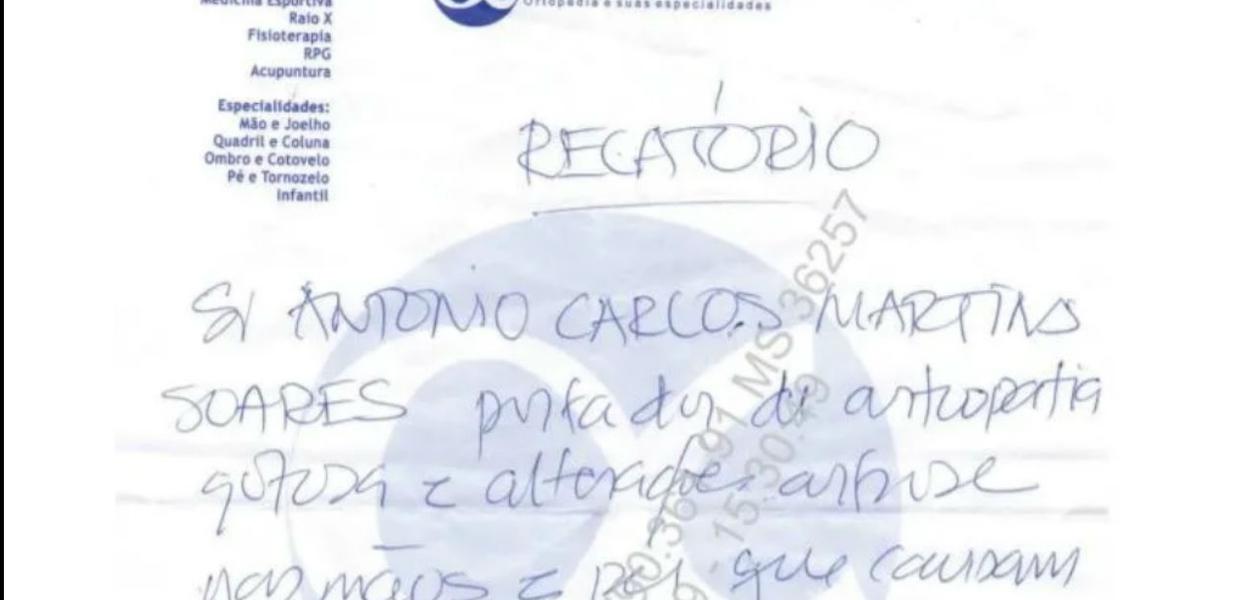 Medicina Esportiva
Raio X
Fisioterapia
RPG
Acupuntura
Especialidades:
Mão e Joelho
Quadril e Coluna
Ombro e Cotovelo
Pé e Tornozelo
Infantil
Ortopedia e suas especialidades
RELATÓRIO
Sr ANTONIO CARLOS MARTINS
SOARES portador de artropatia
gotosa e alterações artrose
nas mãos e pés que causam
MS 36257
15:30:49